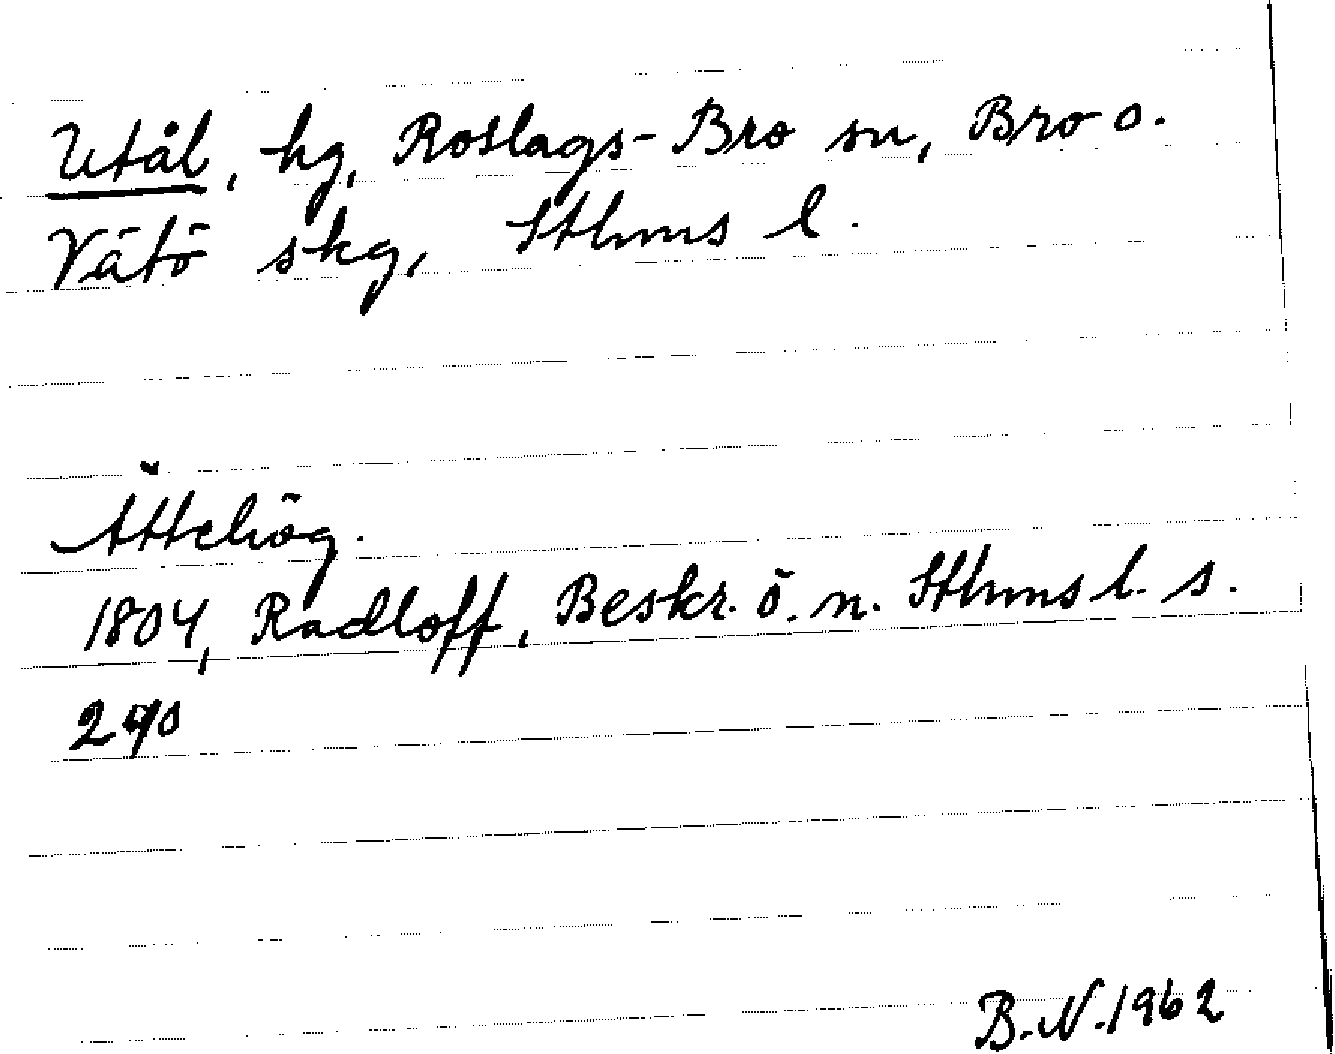 Utål, hg, Roslags-Bro sn, Bro o.
Vätö skg, Sthms l.
Ättehög.
1804, Radloff, Beskr. ö. n. Sthms l. s.
290
B.N. 1962